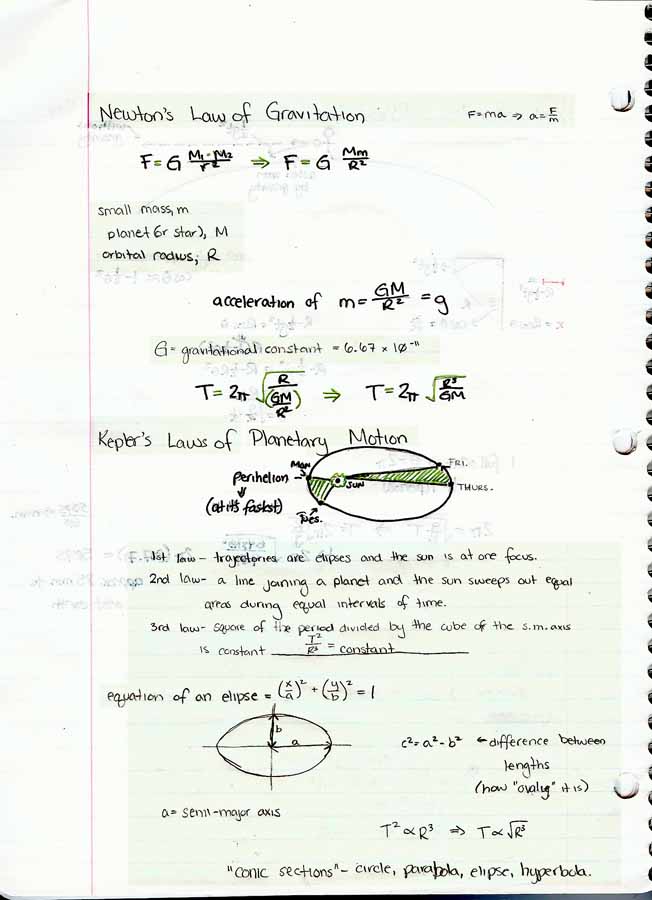 Newton's Law of Gravitation
F=ma ⇒ a=F/m
F=G M₁-M₂/r² ⇒ F=G Mm/R²
small mass, m
planet (or star), M
orbital radius, R
acceleration of m= GM/R² = g
G= gravitational constant = 6.67 × 10⁻¹¹
T=2π √(R/(GM/R²)) ⇒ T=2π √(R³/GM)
Kepler's Laws of Planetary Motion
Mon
FRI.
perihelion
SUN
THURS.
(at its fastest)
Tues.
1st law- trajectories are elipses and the sun is at one focus.
2nd law- a line joining a planet and the sun sweeps out equal
areas during equal intervals of time.
3rd law- square of the period divided by the cube of the s.m.axis
is constant T²/R³ = constant
equation of an elipse = (x/a)² + (y/b)² = 1
b
a
c²=a²-b² ← difference between
lengths
(how "ovaly" it is)
a= semi-major axis
T² ∝ R³ ⇒ T ∝ √R³
"conic sections"- circle, parabola, elipse, hyperbola.